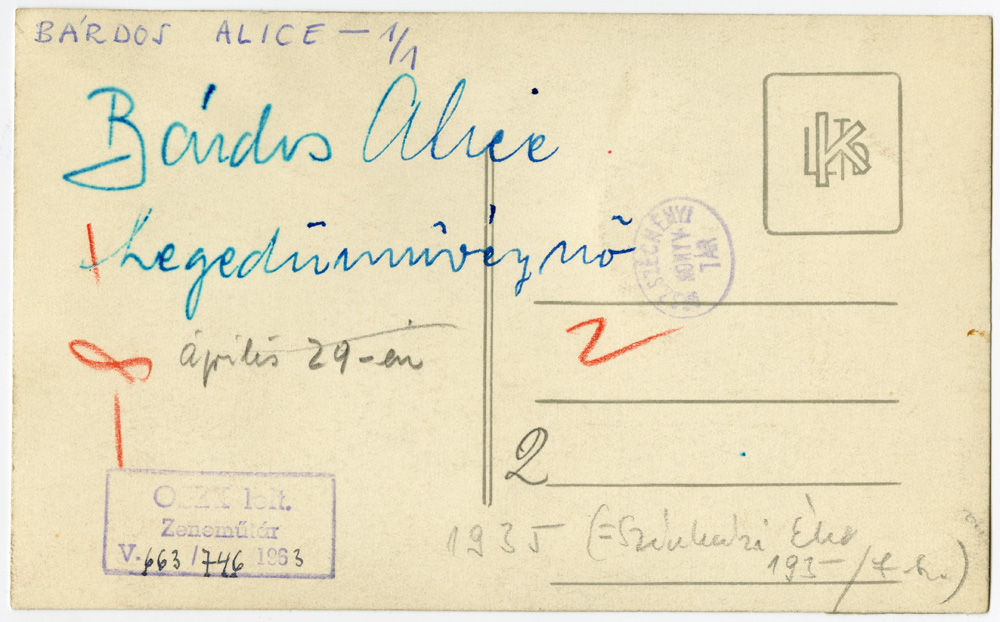 BÁRDOS ALICE – 1/1
Bárdos Alice
hegedűművésznő
SZÉCHÉNYI
KÖNYV-
TÁR
április 29-én
2
2
OSZK lelt.
Zeneműtár
V. 663/746 1963
1935 (= Színházi Élet
193